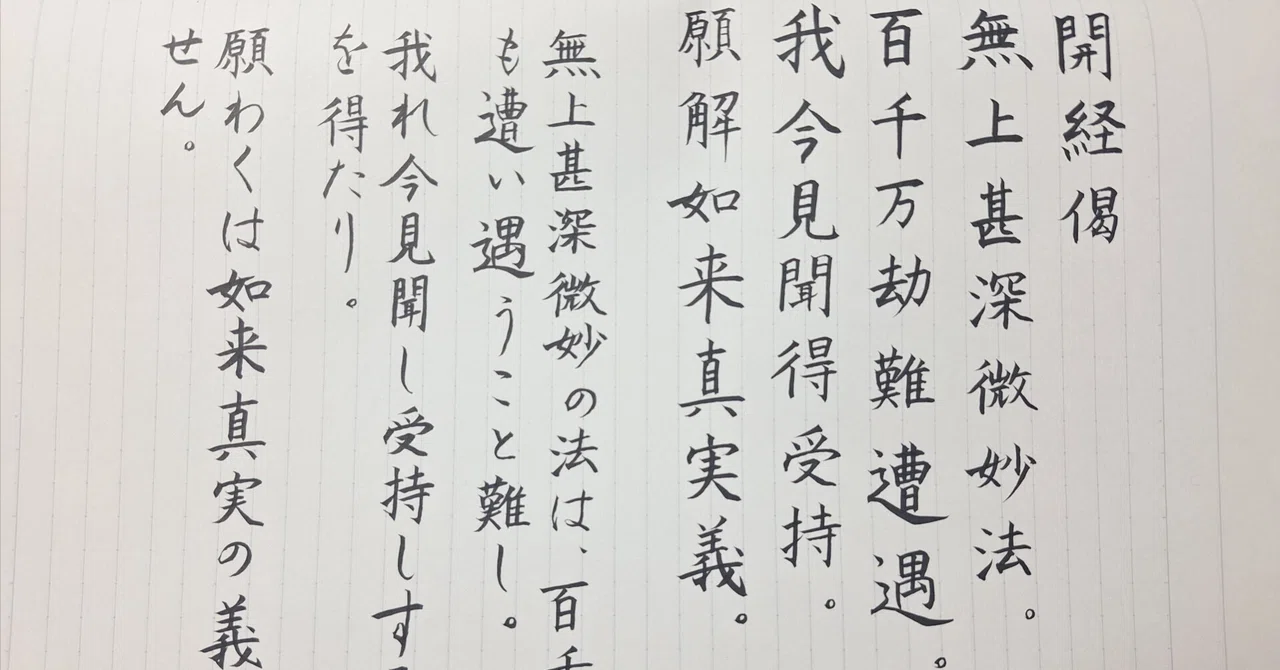 開経偈
無上甚深微妙法。
百千万劫難遭遇。
我今見聞得受持。
願解如来真実義。
無上甚深微妙の法は、百千
も遭い遇うこと難し。
我れ今見聞し受持しす
を得たり。
願わくは如来真実の義
せん。